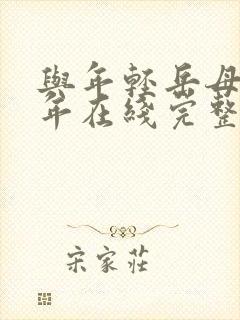 與年輕岳母
年在綫完整
宋家莊